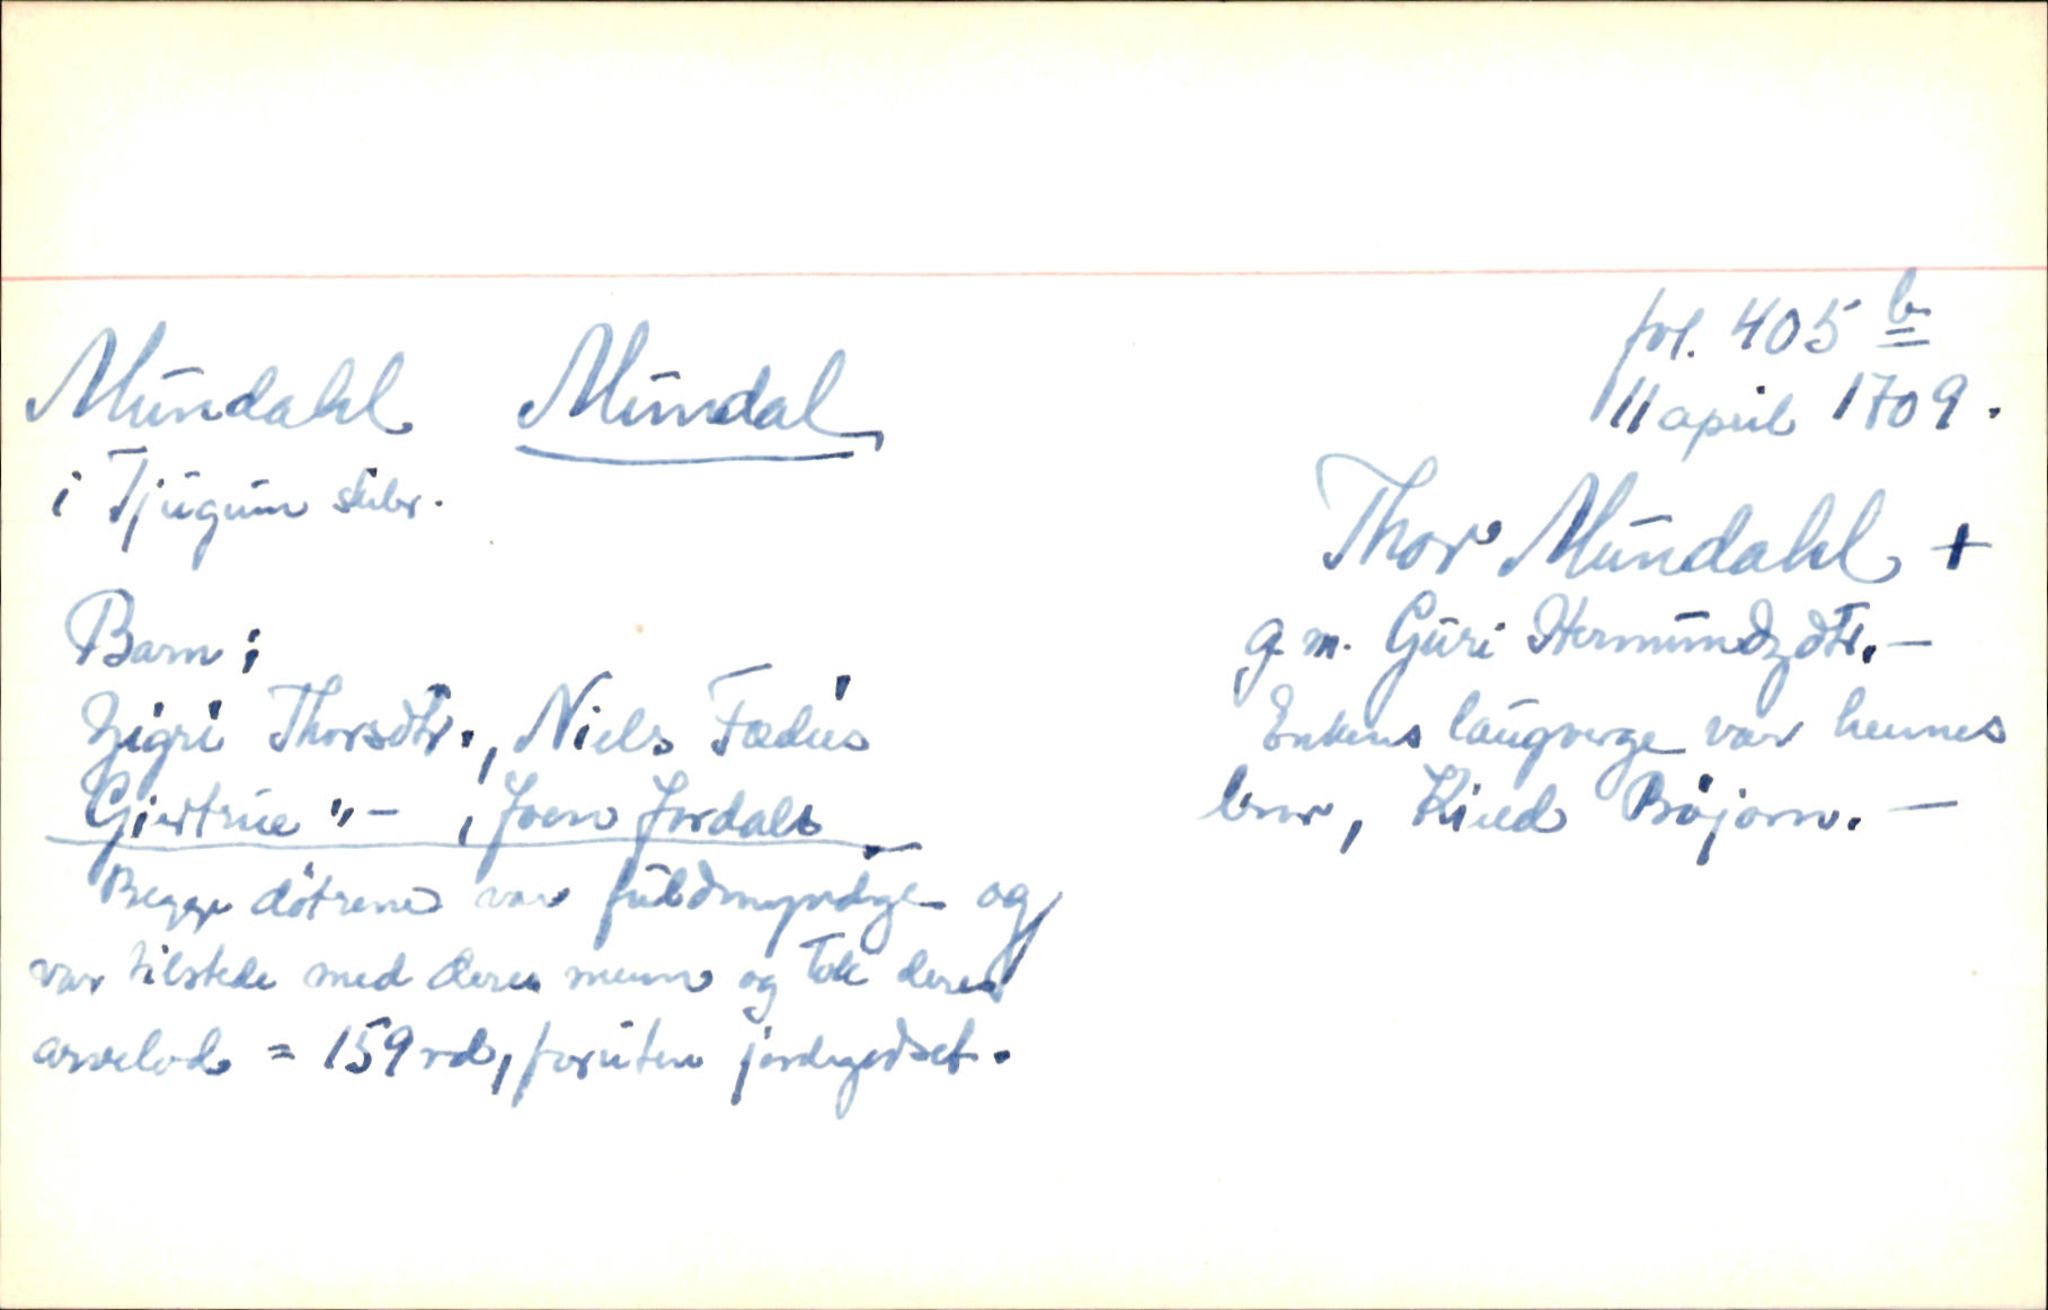 Mundahl Mundal
i Tjugum skibr.
Barn:
Zigri Thorsdtr., Niels Fædies
Giertrue "- , Joen Jordals
Begge døtrene var fuldmyndige og
var tilstede med deres menn og tok deres
arvelod = 159 rd, foruten jordegodset.
fol. 405 b
11 april 1709.
Thor Mundahl +
g. m. Guri Hermundzdtr. -
Enkens laugverge var hennes
bror, Kield Bøjorn. -